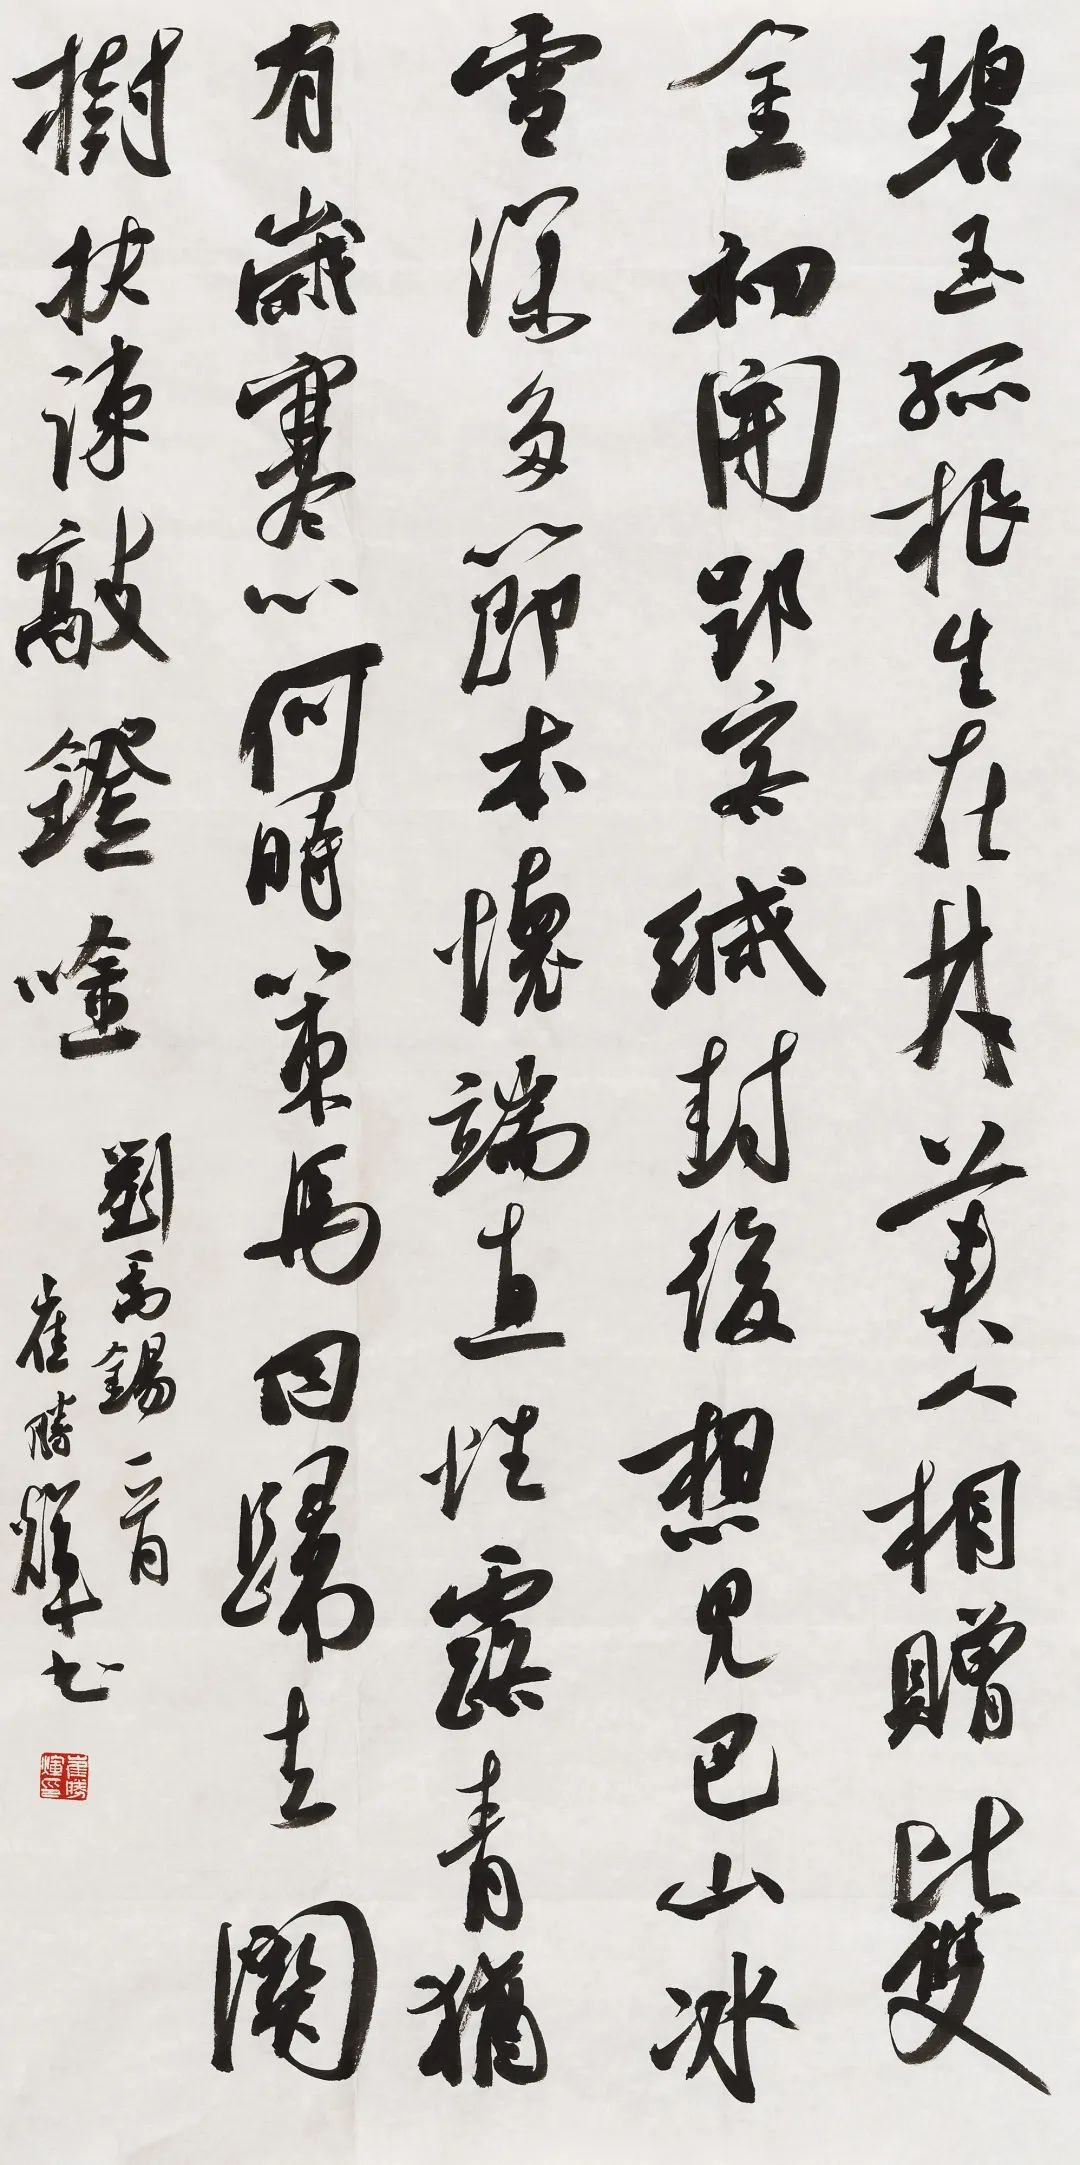 碧玉孤根生在林美人相贈比雙
金初開郢客緘封後想見巴山冰
雪深多節本懷端直性露青猶
有歲寒心何時策馬同歸去關
樹扶疎敲鐙唫
劉禹錫一首
崔勝輝書
崔勝煇印